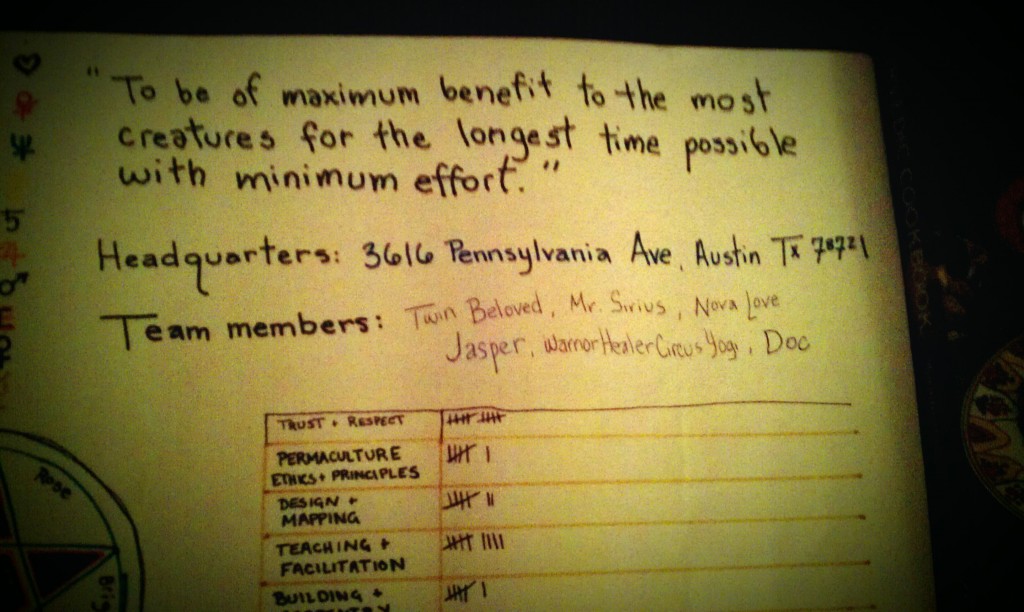 "To be of maximum benefit to the most
creatures for the longest time possible
with minimum effort."
Headquarters: 3616 Pennsylvania Ave, Austin Tx 78721
Team members: Twin Beloved, Mr. Sirius, Nova Love
Jasper, WarriorHealerCircusYogi, Doc
TRUST + RESPECT
PERMACULTURE
ETHICS + PRINCIPLES
DESIGN +
MAPPING
TEACHING +
FACILITATION
BUILDING +
5
Rose